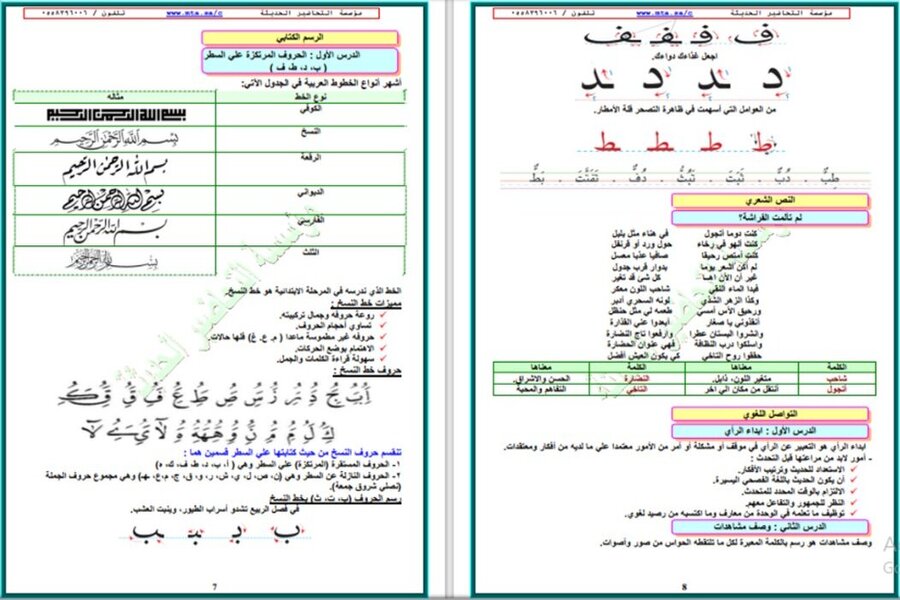 مؤسسة التحاضير الحديثة www.mta.sa/c تلفون / ٠٥٥٨٣٩٦٠٠٦
الرسم الكتابي
الدرس الأول : الحروف المرتكزة علي السطر
( ب، د، ط، ف )
أشهر أنواع الخطوط العربية في الجدول الآتي:
نوع الخط مثاله
الكوفي بسم الله الرحمن الرحيم
النسخ بسم الله الرحمن الرحيم
الرقعة بسم الله الرحمن الرحيم
الديواني بسم الله الرحمن الرحيم
الفارسي بسم الله الرحمن الرحيم
الثلث بسم الله الرحمن الرحيم
الخط الذي ندرسه في المرحلة الابتدائية هو خط النسخ.
مميزات خط النسخ :
روعة حروفه وجمال تركيبته.
تساوي أحجام الحروف.
حروفه غير مطموسة ماعدا ( م. ع. غ) فلها حالات.
الاهتمام بوضع الحركات.
سهولة قراءة الكلمات والجمل.
حروف خط النسخ :
تنقسم حروف النسخ من حيث كتابتها علي السطر قسمين هما :
١- الحروف المستقرة (المرتكزة) علي السطر وهي ( أ، ب، د، ط، ف، ك، ه )
٢- الحروف النازلة عن السطر وهي (ن، ص، ل، ي، ش، ر، و، ق، ج، م، ع، هـ) وهي مجموع حروف الجملة
(نصلي شروق جمعة).
رسم الحروف (ب، ت، ث) بخط النسخ
في فصل الربيع تشدو أسراب الطيور، وينبت العشب.
ب ب ـبـ ـب
7
مؤسسة التحاضير الحديثة www.mta.sa/c تلفون / ٠٥٥٨٣٩٦٠٠٦
ف فـ ـفـ ـف
اجعل غذاءك دواءك.
د ـد د ـد
من العوامل التي أسهمت في ظاهرة التصحر قلة الأمطار.
ط ط ـط ـط
النص الشعري
لم تألمت الفراشة؟
كنت دوما أتجول في هناء مثل بلبل
كنت ألهو في رخاء حول ورد أو قرنفل
كنت أمتص رحيقا صافيا عذبا معسل
لم أكن أشعر يوما بدوار قرب جدول
غير أن الآن أهـا كل شئ قد تغير
فبدا الماء النقي شاحب اللون معكر
وكذا الزهر الشذي لونه السحري أدبر
ورحيق الأمس أمسى طعمه لي مثل حنظل
أنقذوني يا صغار أبعدوا عني القذارة
وانشروا البستان عطرا وارفعوا تاج النضارة
واسلكوا درب النظافة فهي عنوان الحضارة
حققوا روح التآخي كي يكون العيش أفضل
الكلمة معناها الكلمة معناها
شاحب متغير اللون، ذابل. النضارة الحسن والإشراق.
أتجول أنتقل من مكان الي آخر التآخي التفاهم والمحبة
التواصل اللغوي
الدرس الأول : ابداء الرأي
ابداء الرأي هو التعبير عن الرأي في موقف أو مشكلة أو أمر من الأمور معتمدا علي ما لديه من أفكار ومعتقدات.
- أمور لابد من مراعتها قبل التحدث :
الاستعداد للحديث وترتيب الأفكار.
أن يكون الحديث باللغة الفصحي اليسيرة.
الالتزام بالوقت المحدد للمتحدث.
النظر للجمهور والتفاعل معهم.
توظيف ما تعلمه في الوحدة من معارف وما اكتسبه من رصيد لغوي.
الدرس الثاني : وصف مشاهدات
وصف مشاهدات هو رسم بالكلمة المعبرة لكل ما تلتقطه الحواس من صور وأصوات.
8